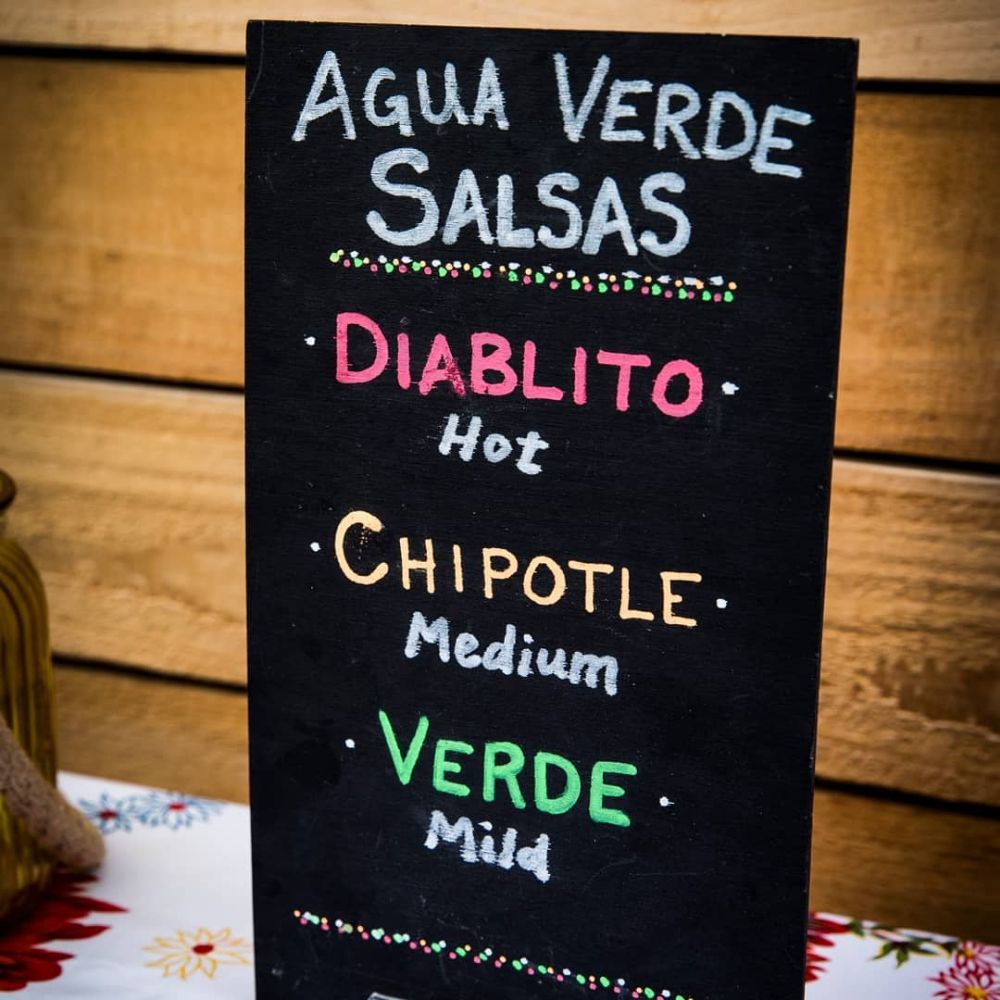 AGUA VERDE
SALSAS
DIABLITO
Hot
CHIPOTLE
Medium
VERDE
Mild